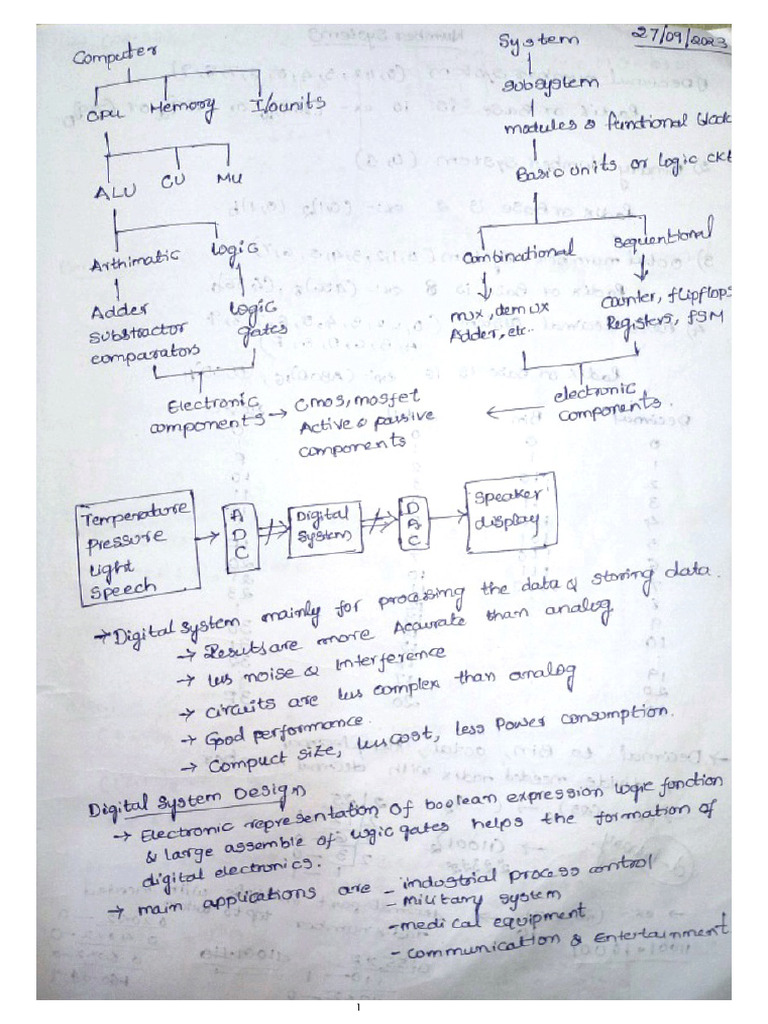 27/09/2023
Computer
CPU Memory I/O units
ALU CU MU
Arthimatic Logic
Adder
substractor
comparators
Logic
gates
Electronic
components → Cmos, mosfet
Active & passive
components
System
subsystem
modules & functional block
Basic units or logic ckt
Combinational Sequentional
mux, demux
Adder, etc..
Counter, flipflops
Registers, FSM
electronic
components.
Temperature
Pressure
Light
Speech
ADC
Digital
System
DAC
Speaker
display
→ Digital system mainly for processing the data & storing data.
→ Results are more Accurate than analog
→ less noise & Interference
→ circuits are less complex than analog
→ Good performance.
→ Compact size, less cost, less Power consumption.
Digital System Design
→ Electronic representation of boolean expression logic function
& large assemble of logic gates helps the formation of
digital electronics.
→ main applications are - industrial process control
- military system
- medical equipment
- communication & Entertainment
1